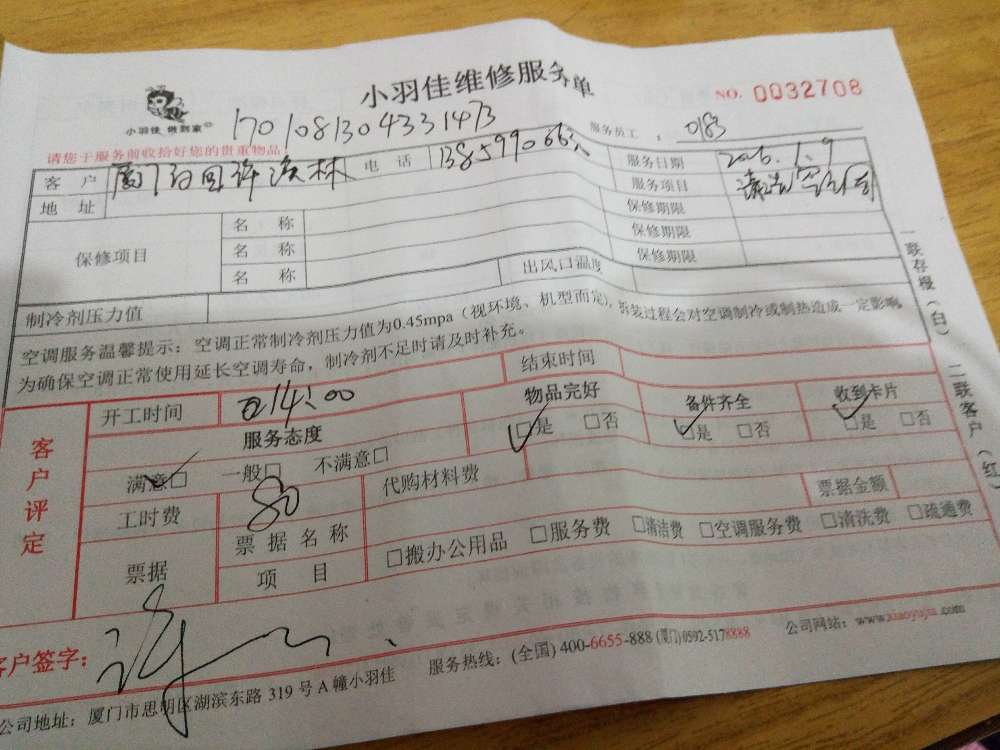 小羽佳维修服务单
NO. 0032708
小羽佳 做到家
1701081304331473
服务员工： 0183
请您于服务前收拾好您的贵重物品！
客户 电话 服务日期
地址 服务项目
保修项目 名称 保修期限
名称 保修期限
名称 保修期限
制冷剂压力值 出风口温度
空调服务温馨提示：空调正常制冷剂压力值为0.45mpa（视环境、机型而定），拆装过程会对空调制冷或制热造成一定影响，
为确保空调正常使用延长空调寿命，制冷剂不足时请及时补充。
一联存根（白） 二联客户（红）
客户评定
开工时间 14:00 结束时间
服务态度 物品完好 备件齐全 收到卡片
满意□ 一般□ 不满意□ □是 □否 □是 □否 □是 □否
工时费 80 代购材料费
票据 票据名称 票据金额
项目 □搬办公用品 □服务费 □清洁费 □空调服务费 □清洗费 □疏通费
客户签字：
公司地址：厦门市思明区湖滨东路 319 号 A 幢小羽佳 服务热线：(全国) 400-6655-888 (厦门) 0592-5178888 公司网站：www.xiaoyujia.com